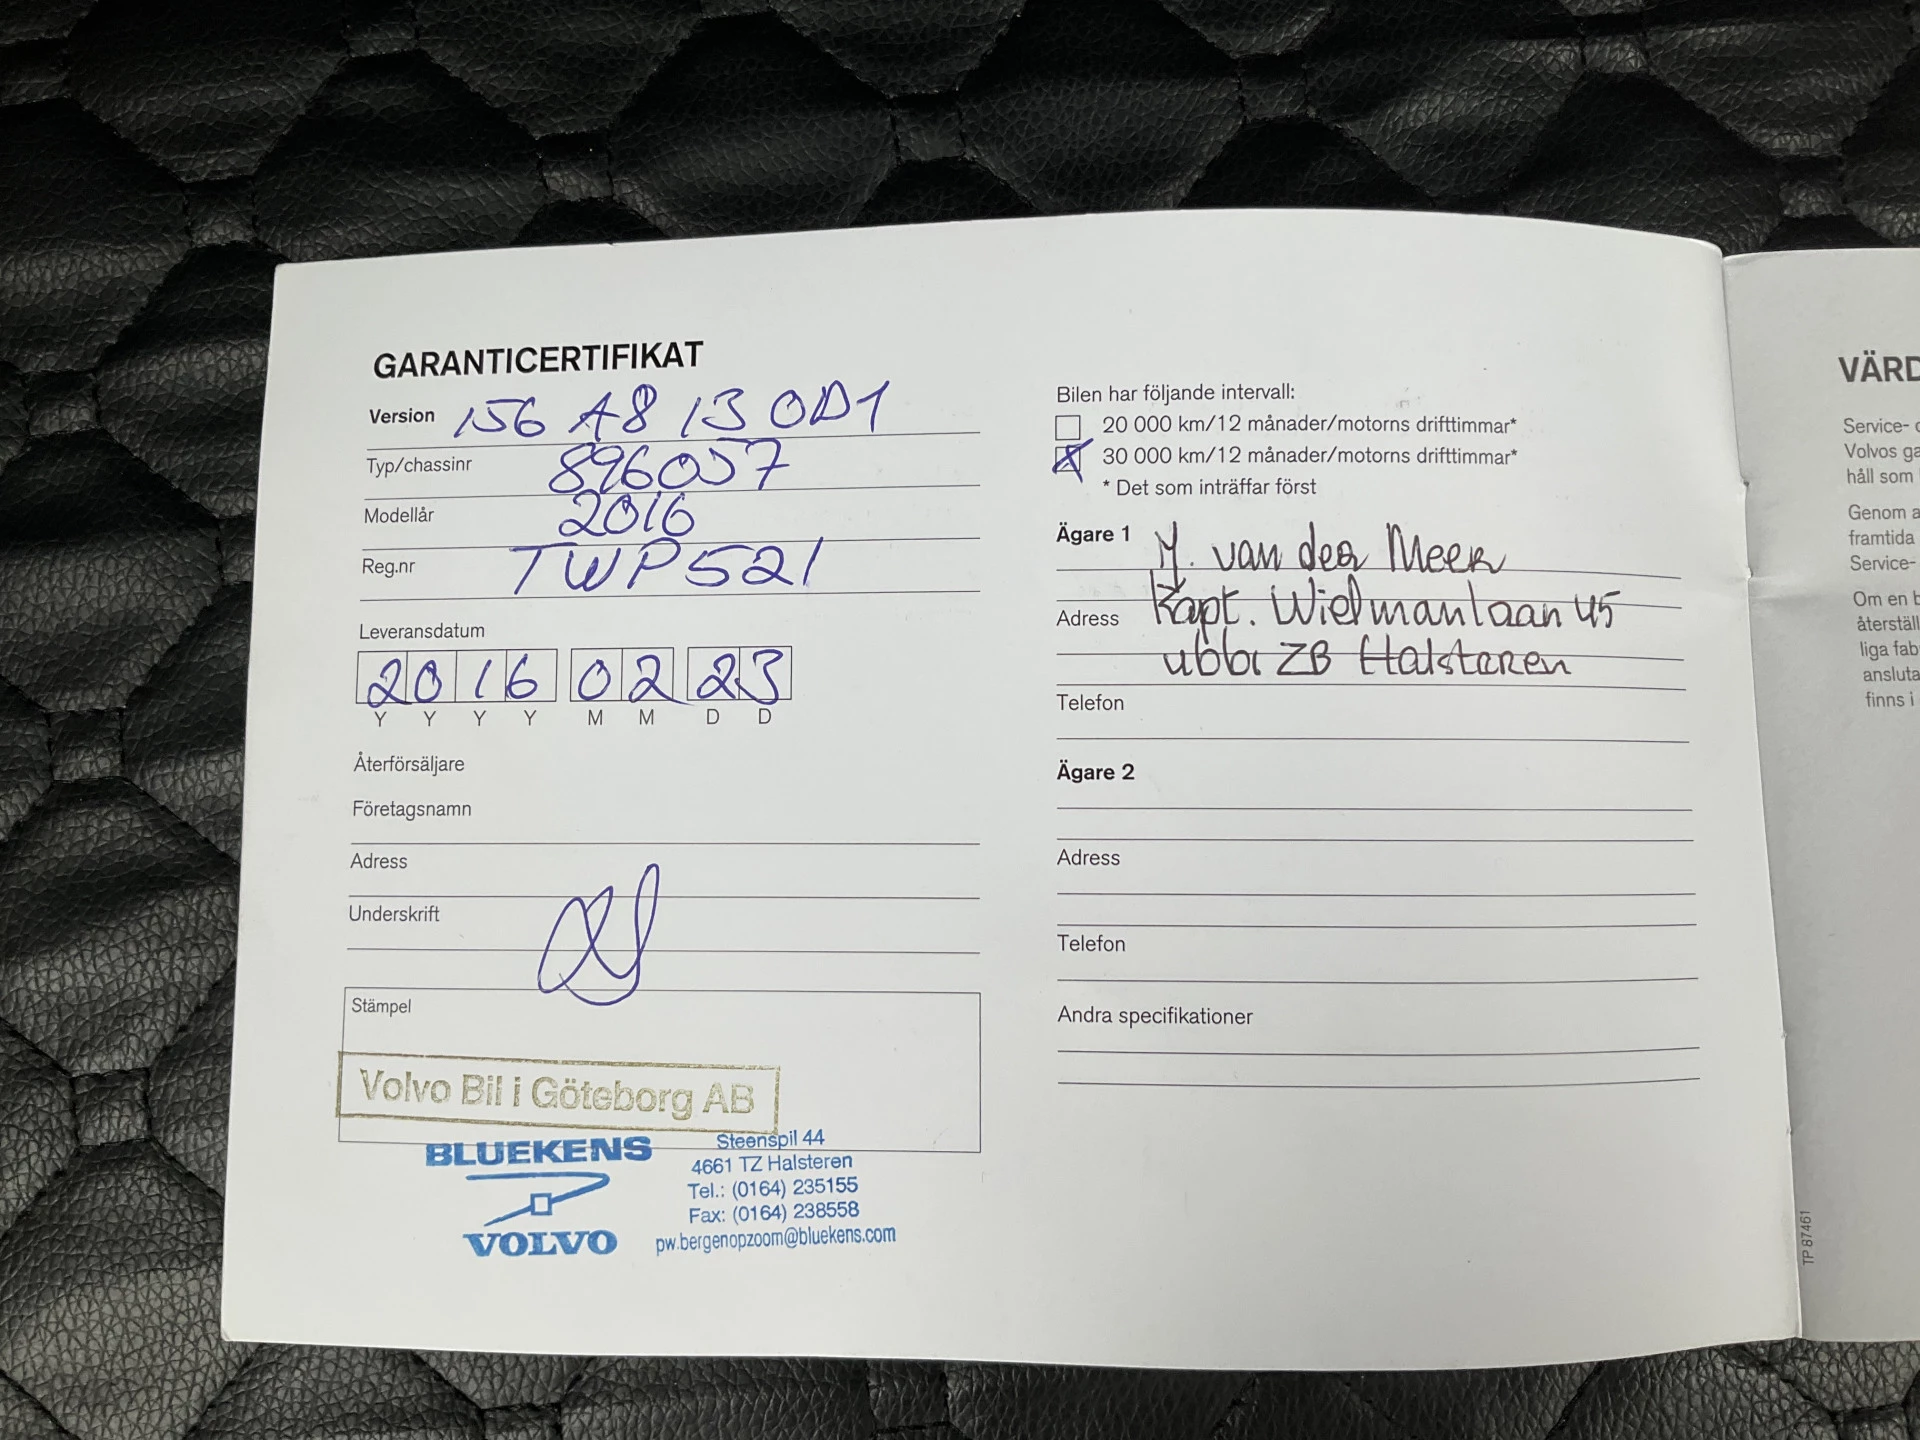 GARANTICERTIFIKAT
Version 156 A8 13 0D1
Typ/chassinr 896057
Modellår 2016
Reg.nr TWP521
Leveransdatum
2016 02 23
Y Y Y Y M M D D
Återförsäljare
Företagsnamn
Adress
Underskrift
Stämpel
Volvo Bil i Göteborg AB
BLUEKENS
VOLVO
Steenspil 44
4661 TZ Halsteren
Tel.: (0164) 235155
Fax: (0164) 238558
pw.bergenopzoom@bluekens.com
Bilen har följande intervall:
20 000 km/12 månader/motorns drifttimmar*
30 000 km/12 månader/motorns drifttimmar*
* Det som inträffar först
Ägare 1 van der Meer
Adress Kapt. Wielmanlaan 45
4661 ZB Halsteren
Telefon
Ägare 2
Adress
Telefon
Andra specifikationer
TP 87461
VÄRD
Service-
Volvos ga
håll som
Genom a
framtida
Service-
Om en b
återställ
liga fab
ansluta
finns i